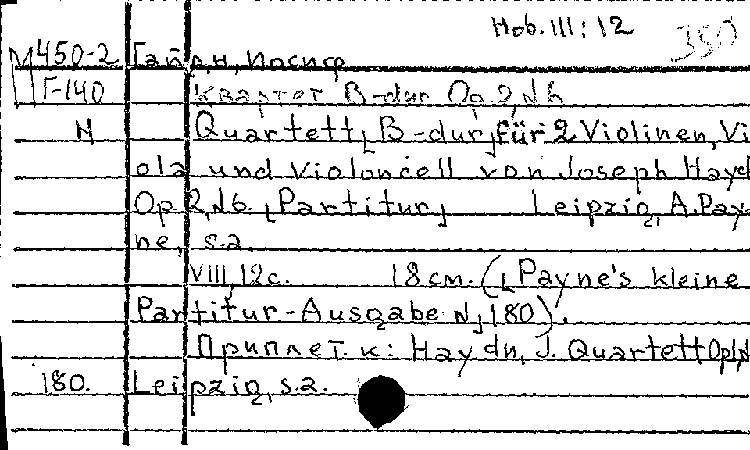 Hob. III: 12
350
М450-2 Гайдн, Иосиф
Г-140 Квартет B-dur Op. 2, №6
N Quartett [B-dur] für 2 Violinen, Vi
ola und Violoncell von Joseph Hayd
Op 2, №6. [Partitur] Leipzig, A. Pay
ne, s.a.
VIII, 12 с. 18 см. ([Payne's kleine
Partitur-Ausgabe N] 180).
Приплет. к: Haydn, J. Quartett Op 1, N
180. Leipzig, s.a.